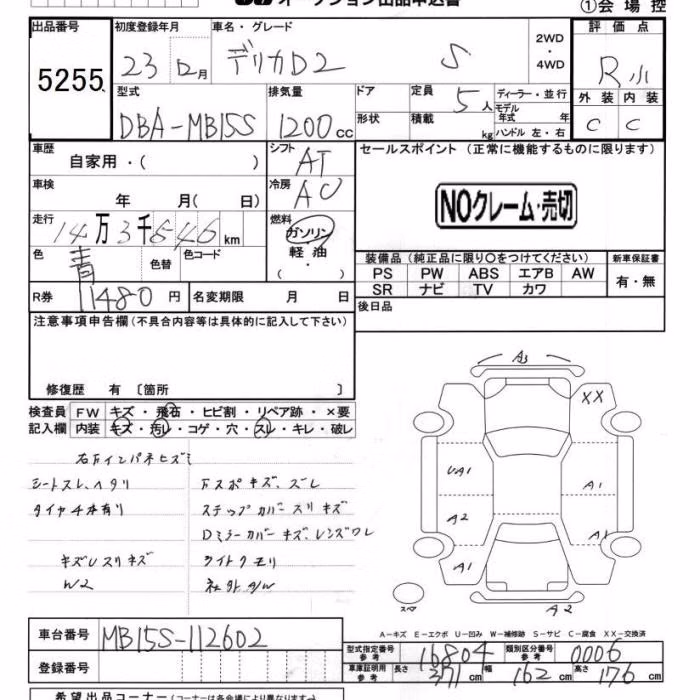 ①会場控
出品番号
5255
初度登録年月
23 年 12月
車名・グレード
デリカD2 S
2WD
・
4WD
評価点
R小
外装 内装
C C
型式
DBA-MB15S
排気量
1200cc
ドア
形状
定員 5人
積載 kg
ディーラー・並行
モデル年式 年
ハンドル 左・右
車歴
自家用・( )
シフト
AT
セールスポイント (正常に機能するものに限ります)
NOクレーム・売切
車検
年 月( 日)
冷房
AC
走行
14万3千546km
燃料
ガソリン
軽油
( ・ )
色
青
色替
色コード
装備品 (純正品に限り○をつけてください)
PS PW ABS エアB AW
SR ナビ TV カワ
新車保証書
有・無
R券 11480円
名変期限 月 日
後日品
注意事項申告欄(不具合内容等は具体的に記入して下さい)
修復歴 有 〔箇所 〕
検査員 FW キズ・飛石・ヒビ割・リペア跡・×要
記入欄 内装 キズ・汚レ・コゲ・穴・スレ・キレ・破レ
右Fインパネヒズミ
シートスレ、ヘタリ
タイヤ4本有り
キズUスリキズ
W2
Fスポキズ、ズレ
ステップカバースリキズ
Dミラーカバーキズ、レンズワレ
ライトクモリ
社外A/W
A3
XX
UA1
A1
A2
A1
A1
A1
スペア
A2
A-キズ E-エクボ U-凹み W-補修跡 S-サビ C-腐食 XX-交換済
車台番号 MB15S-112602
登録番号
型式指定番号 参考 16804
類別区分番号 参考 0006
車庫証明用 参考 長さ 371cm 幅 162cm 高さ 176cm
希望出品コーナー(コーナーは各会場により異なります)